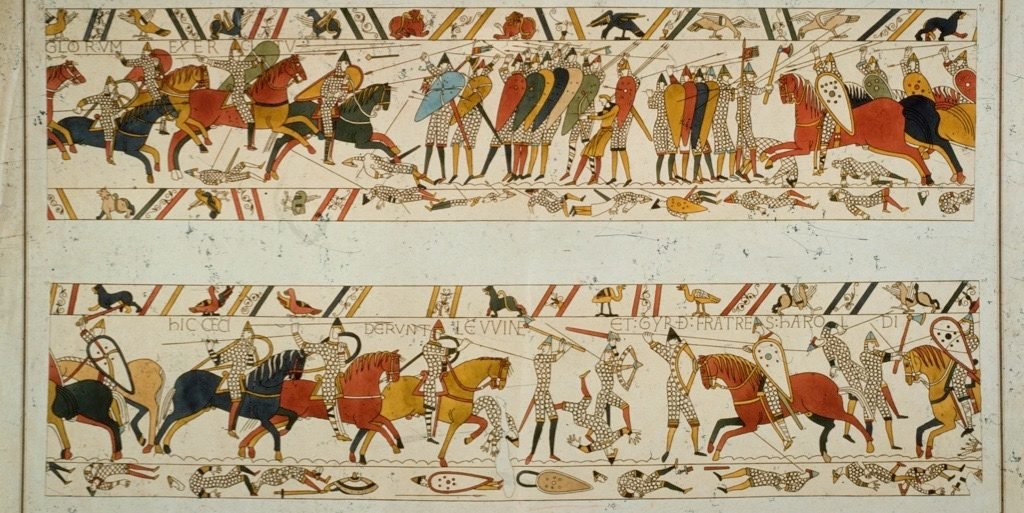 GLORVM EXER CITV
HIC CECI DERVNT LEVVINE ET: GYRÐ: FRATRES: HAROL DI